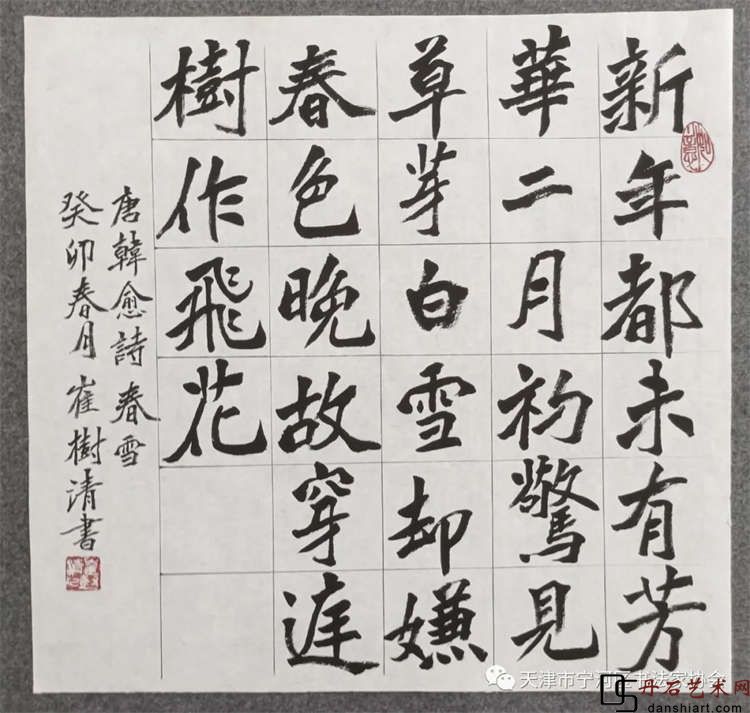 新年都未有芳
華二月初驚見
草芽白雪却嫌
春色晚故穿庭
樹作飛花
唐韓愈詩春雪
癸卯春月崔樹清書
天津市宁河区书法家协会
丹石艺术网
danshiart.com